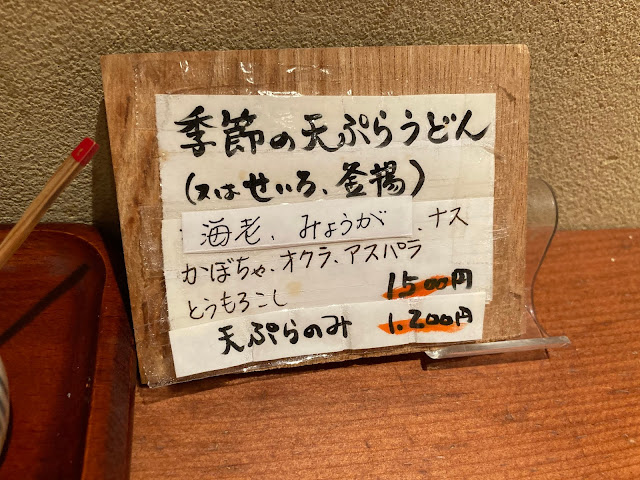 季節の天ぷらうどん
(又はせいろ、釜揚)
海老、みょうが、ナス
かぼちゃ、オクラ、アスパラ
とうもろこし 1500円
天ぷらのみ 1.200円